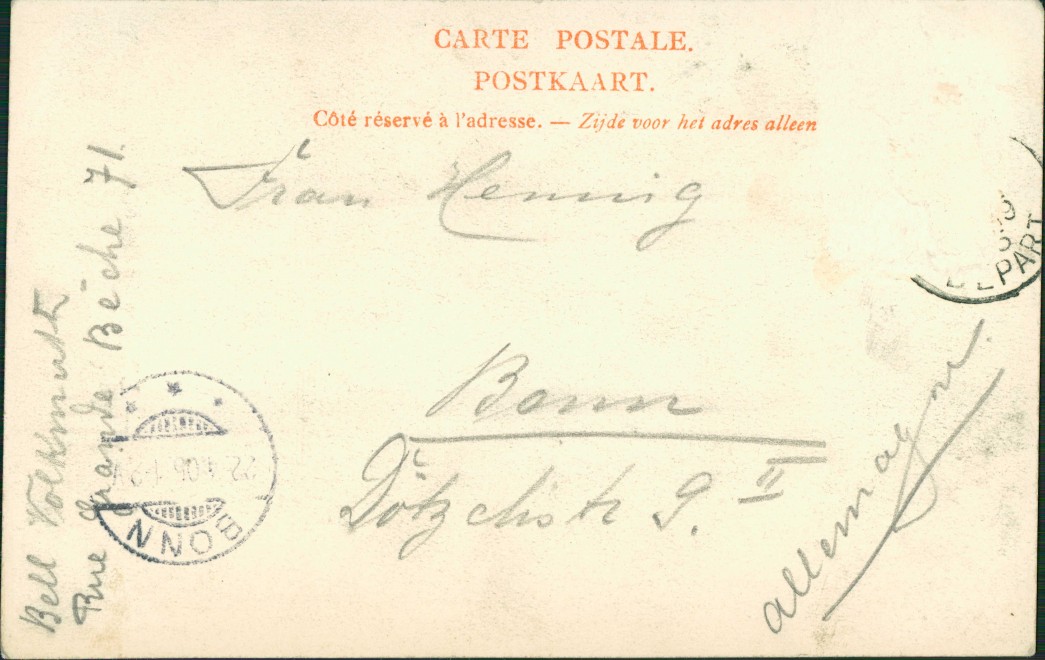 CARTE POSTALE.
POSTKAART.
Côté réservé à l'adresse. — Zijde voor het adres alleen
Frau Hennig
Bonn
Dötzchstr 9. II
allemagne.
Bell Volkmuth
Rue Grande Bêche 71.
BONN
22. 06 1-2N
DEPART